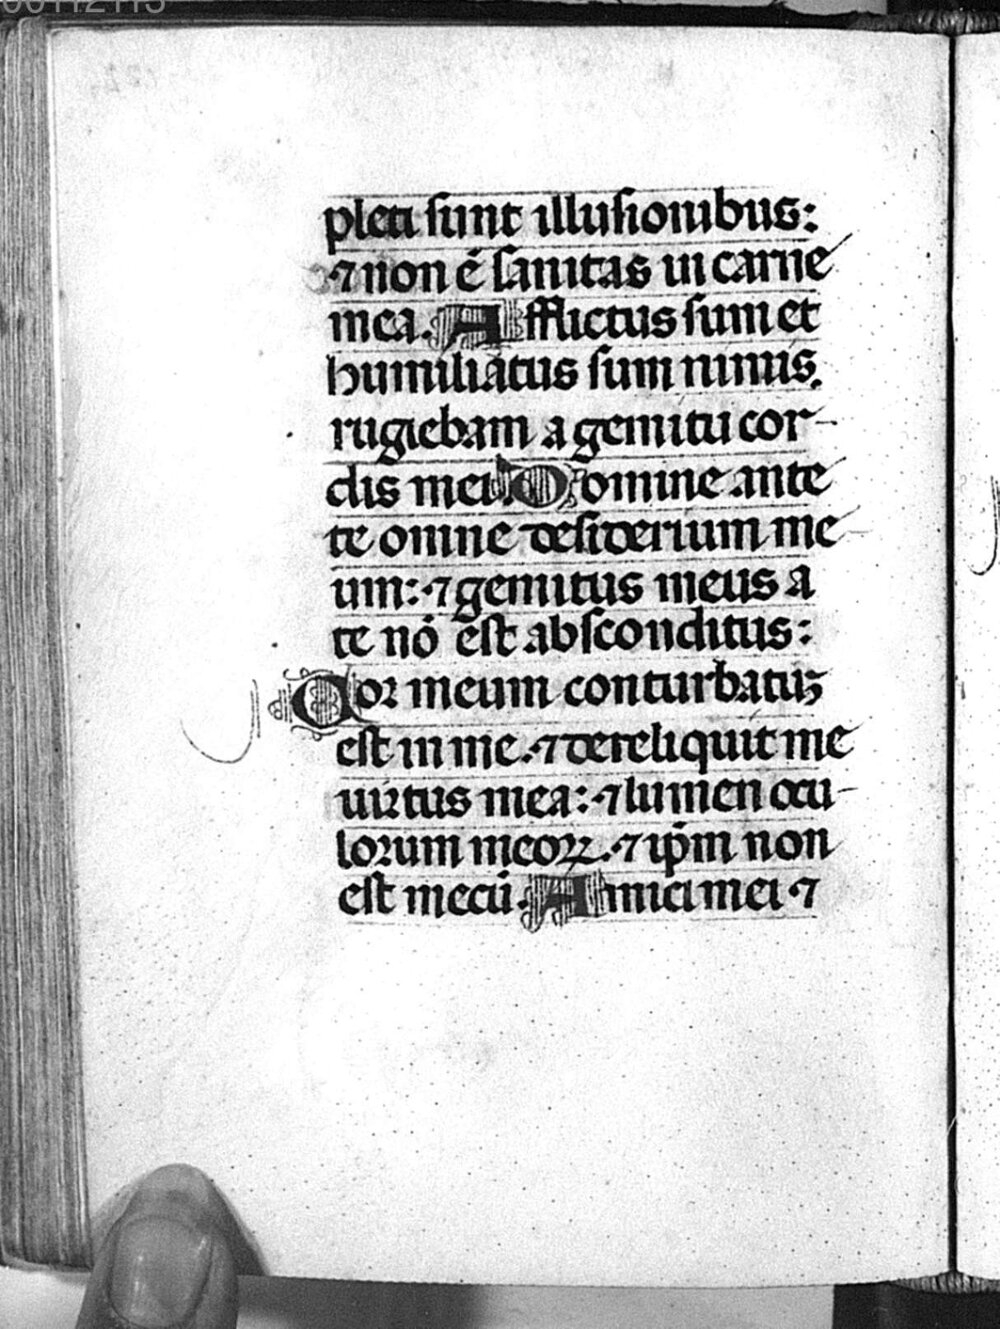 pleti sunt illusionibus:
⁊ non ē sanitas in carne
mea. Afflictus sum et
humiliatus sum nimis.
rugiebam a gemitu cor-
dis mei. Domine ante
te omne desiderium me-
um: ⁊ gemitus meus a
te nō est absconditus:
Cor meum conturbatuꝫ
est in me. ⁊ dereliquit me
uirtus mea: ⁊ lumen ocu-
lorum meoꝝ. ⁊ ip̄m non
est mecū. Amici mei ⁊